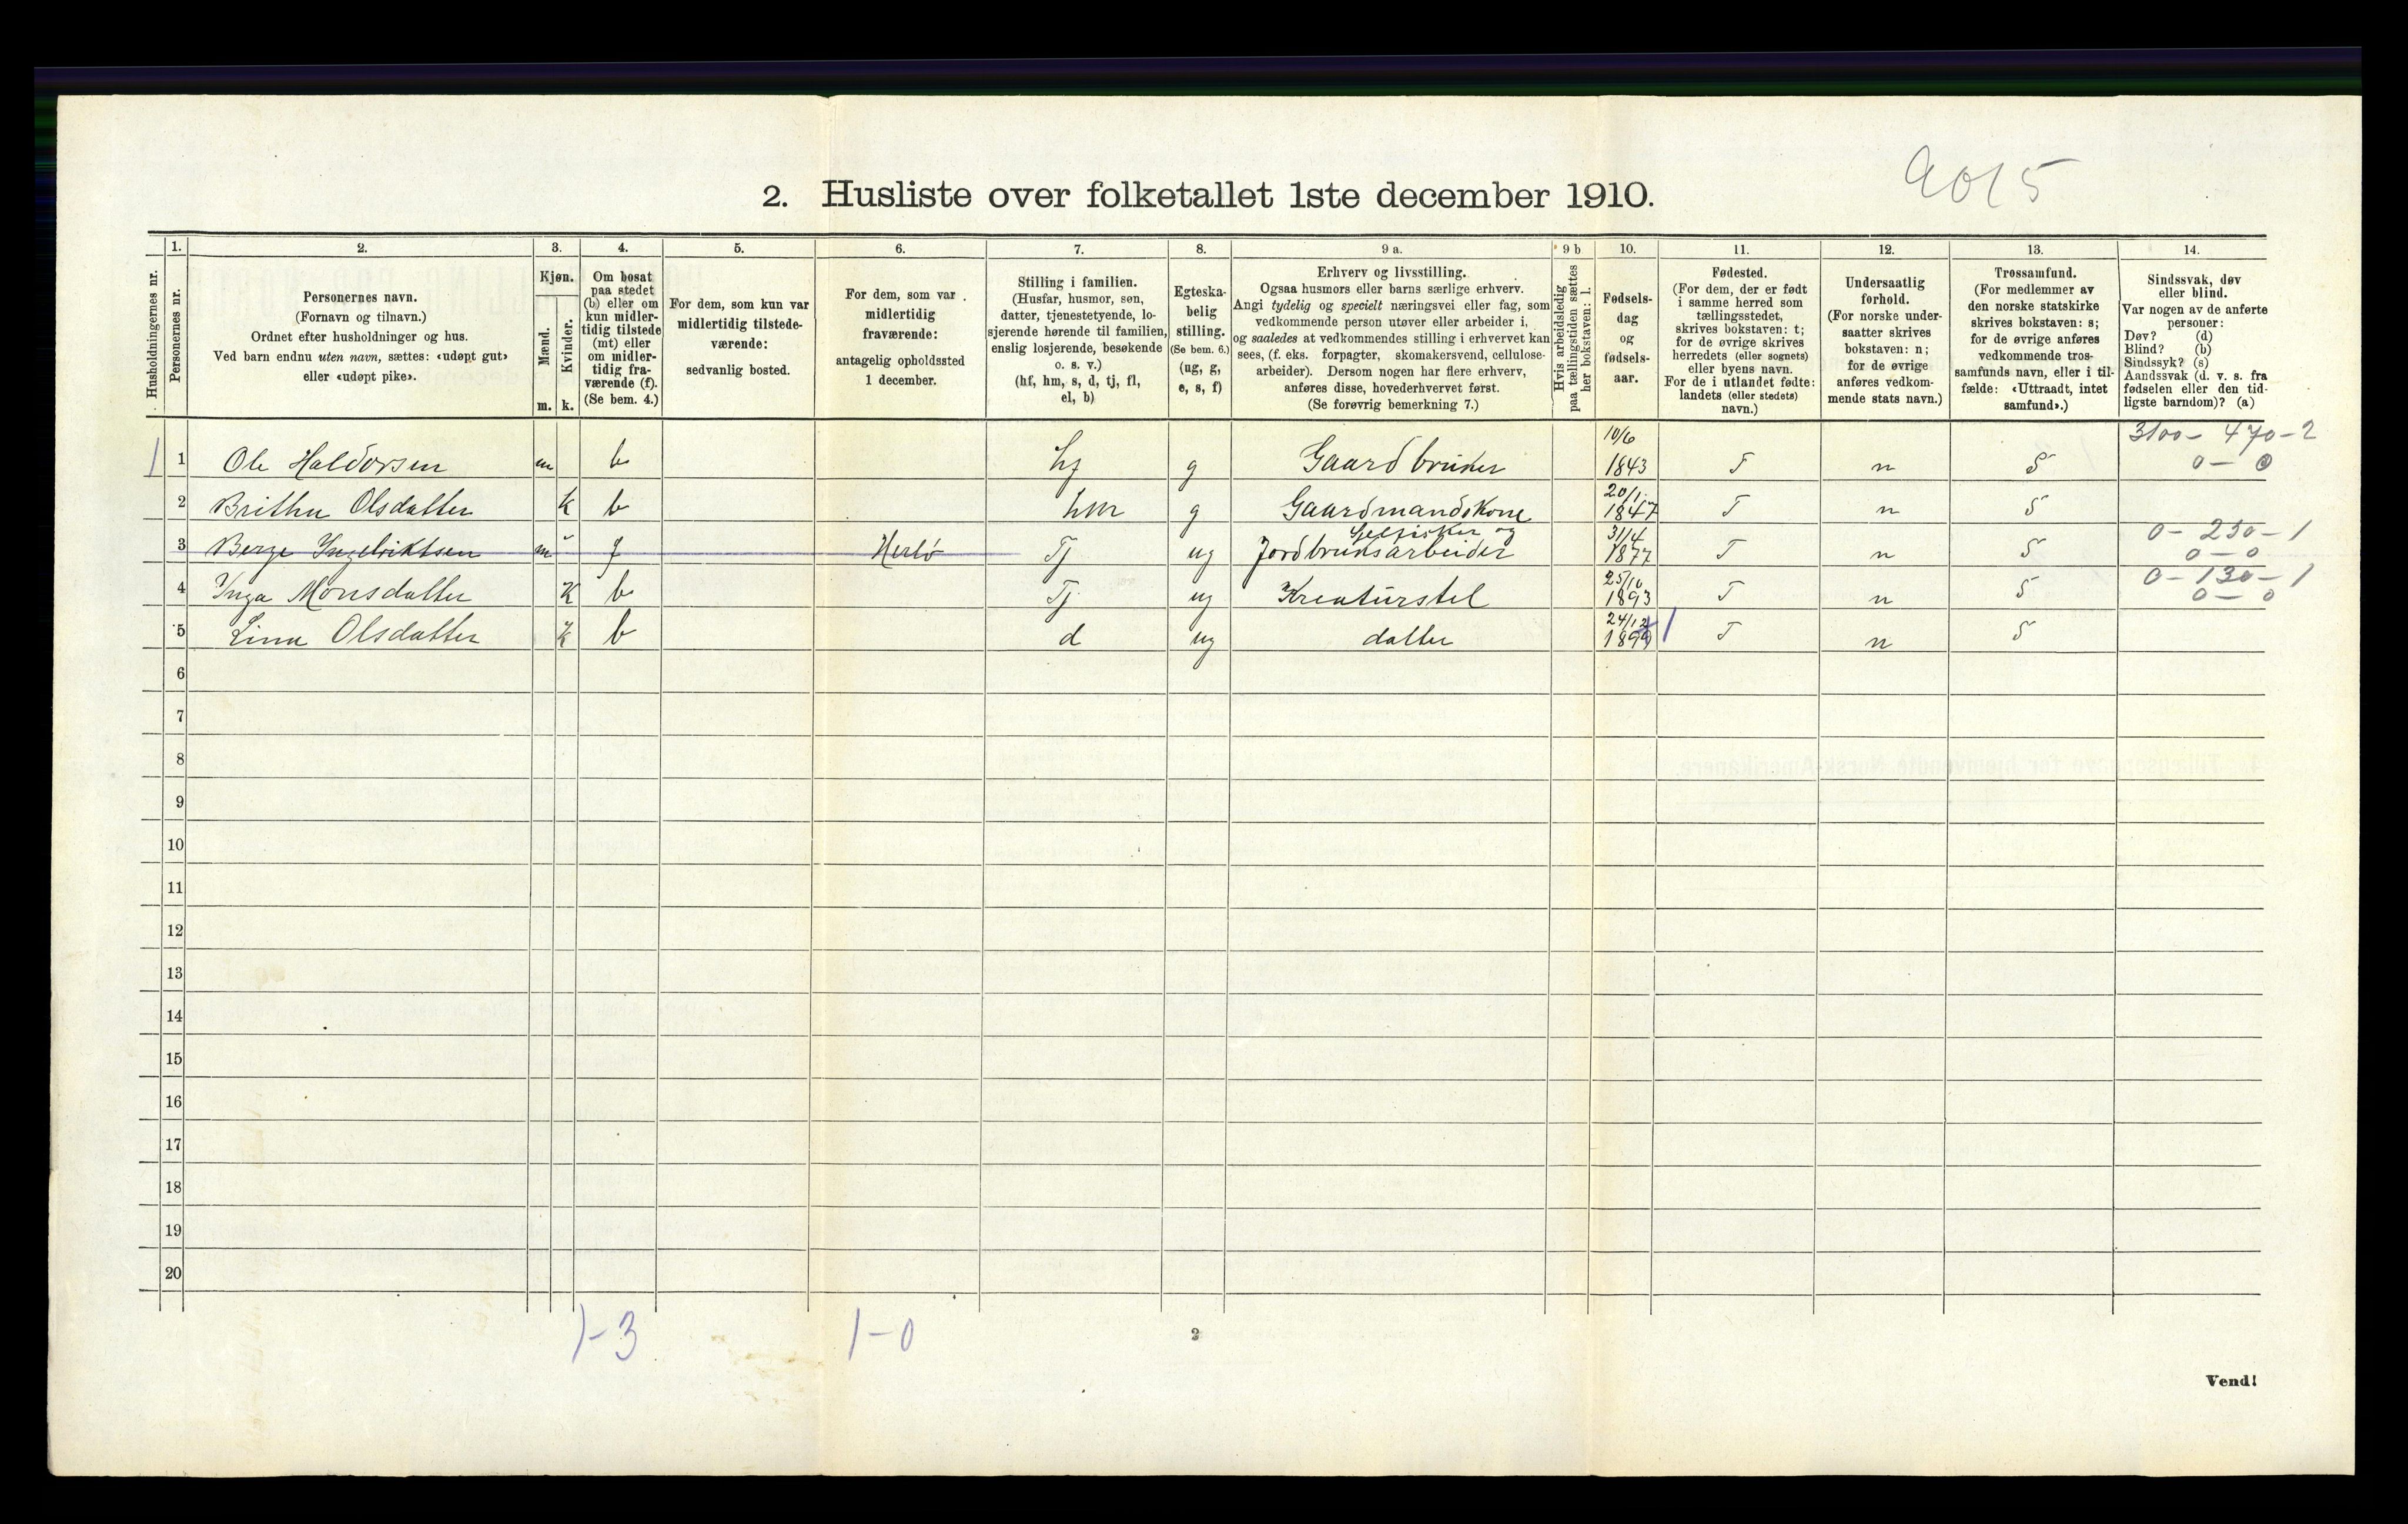 9015
2. Husliste over folketallet 1ste december 1910.
Husholdningernes nr.
1.
Personernes nr.
2.
Personernes navn.
(Fornavn og tilnavn.)
Ordnet efter husholdninger og hus.
Ved barn endnu uten navn, sættes: «udøpt gut»
eller «udøpt pike».
3.
Kjøn.
Mænd.
Kvinder.
m. k.
4.
Om bosat
paa stedet
(b) eller om
kun midler-
tidig tilstede
(mt) eller
om midler-
tidig fra-
værende (f).
(Se bem. 4.)
5.
For dem, som kun var
midlertidig tilstede-
værende:
sedvanlig bosted.
6.
For dem, som var
midlertidig
fraværende:
antagelig opholdssted
1 december.
7.
Stilling i familien.
(Husfar, husmor, søn,
datter, tjenestetyende, lo-
sjerende hørende til familien,
enslig losjerende, besøkende
o. s. v.)
(hf, hm, s, d, tj, fl,
el, b)
8.
Egteska-
belig
stilling.
(Se bem. 6.)
(ug, g,
e, s, f)
9 a.
Erhverv og livsstilling.
Ogsaa husmors eller barns særlige erhverv.
Angi tydelig og specielt næringsvei eller fag, som
vedkommende person utøver eller arbeider i,
og saaledes at vedkommendes stilling i erhvervet kan
sees, (f. eks. forpagter, skomakersvend, cellulose-
arbeider). Dersom nogen har flere erhverv,
anføres disse, hovederhvervet først.
(Se forøvrig bemerkning 7.)
9 b
Hvis arbeidsledig
paa tællingstiden sættes
her bokstaven: l.
10.
Fødsels-
dag
og
fødsels-
aar.
11.
Fødested.
(For dem, der er født
i samme herred som
tællingsstedet,
skrives bokstaven: t;
for de øvrige skrives
herredets (eller sognets)
eller byens navn.
For de i utlandet fødte:
landets (eller stedets)
navn.)
12.
Undersaatlig
forhold.
(For norske under-
saatter skrives
bokstaven: n;
for de øvrige
anføres vedkom-
mende stats navn.)
13.
Trossamfund.
(For medlemmer av
den norske statskirke
skrives bokstaven: s;
for de øvrige anføres
vedkommende tros-
samfunds navn, eller i til-
fælde: «Uttraadt, intet
samfund».)
14.
Sindssvak, døv
eller blind.
Var nogen av de anførte
personer:
Døv? (d)
Blind? (b)
Sindssyk? (s)
Aandssvak (d. v. s. fra
fødselen eller den tid-
ligste barndom)? (a)
10/6 3100- 470-2
1 1 Ole Haldorsen m b hf g Gaardbruker 1843 T n S 0-0
20/1
2 Brithe Olsdatter k b hm g Gaardmandskone 1847 T n S
og 31/4 0- 250-1
3 Berge Ingebriktsen m f Herlø Tj ug Jordbruksarbeider 1877 T n S 0-0
25/10 0-130-1
4 Inga Monsdatter K b Tj ug Kreaturstel 1893 T n S 0-0
24/12
5 Lina Olsdatter K b d ug datter 1899 1 T n S
6
7
8
9
10
11
12
13
14
15
16
17
18
19
20
1-3 1-0
2
Vend!